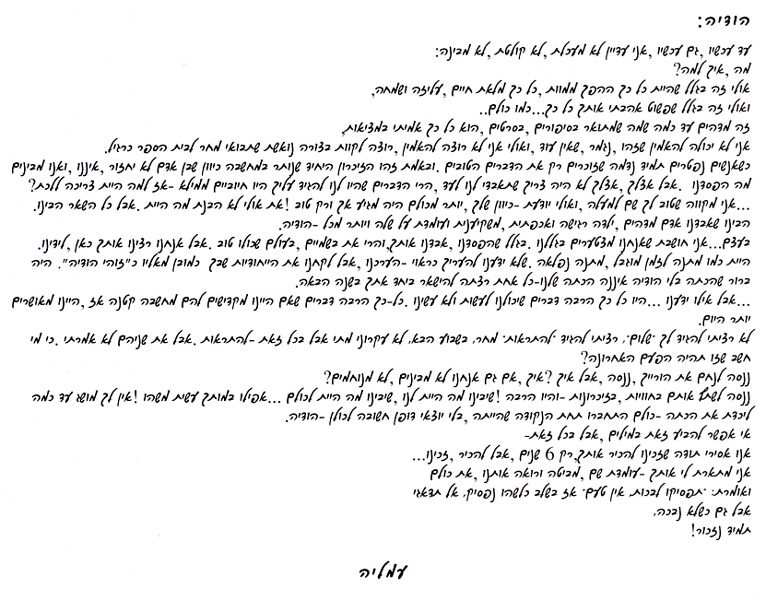 הודיה:
עד עכשיו, גם עכשיו, אני עדיין לא מעכלת, לא קולטת, לא מבינה:
מה, איך למה?
אולי זה בגלל שהיית כל כך ההפך ממוות, כל כך מלאת חיים, עליזה ושמחה,
ואולי זה בגלל שפשוט אהבתי אותך כל כך...כמו כולם..
זה מדהים עד כמה שמה שמתואר בסיפורים, בסרטים, הוא כל כך אמיתי במציאות,
אני לא יכולה להאמין שזהו, נגמר, שאין עוד, ואולי אני לא רוצה להאמין, רוצה לקוות בצורה נואשת שתבואי מחר לבית הספר כרגיל.
כשאנשים נפטרים תמיד נדמה שזוכרים רק את הדברים הטובים. ובאמת זהו הזיכרון היחיד שנותר במחשבה כיוון שבן אדם לא יחזור, איננו, ואנו מבינים
מה הפסדנו. אבל אצלך, אצלך לא היה צריך שתאבדי לנו לעד, הרי הדברים שהיו לנו להגיד עליך היו חיוביים ממילא -אז למה היית צריכה ללכת?
...אני מקווה שטוב לך שם למעלה, ואולי יודעת -כיוון שלך, יותר מכולם היה מגיע אך ורק טוב! את אולי לא הבנת מה היית. אבל כל השאר הבינו.
הבינו שאבדנו אדם מדהים, ילדה רגישה ואכפתית, משקיענית ועומדת על שלה ויותר מכל -הודיה.
בעצם...אני חושבת שאנחנו מצטערים בגללנו. בגלל שהפסדנו, אבדנו אותך. והרי את בשמיים, בעולם שכולו טוב. אבל אנחנו רצינו אותך כאן, לידינו.
היית כמו מתנה לזמן מוגבל, מתנה נפלאה. שלא ידענו להעריך כראוי -הערכנו, אבל לקחנו את הייחודיות שבך כמובן מאליו כ"זוהי הודיה". היה
ברור שהכתה בלי הודיה איננה הכתה שלנו-כל אחת רצתה להישאר ביחד אתך בשנה הבאה.
...אבל אילו ידענו... היו כל כך הרבה דברים שיכולנו לעשות ולא עשינו. כל-כך הרבה דברים שאם היינו מקדישים להם מחשבה קטנה אז, היינו מאושרים
יותר היום.
לא רציתי להגיד לך "שלום". רציתי להגיד "להתראות" מחר, בשבוע הבא, לא עקרוני מתי אבל בכל זאת -להתראות. אבל את שניהם לא אמרתי. כי מי
חשב שזו תהיה הפעם האחרונה?
ננסה לנחם את הורייך, ננסה, אבל איך? איך, אם גם אנחנו לא מבינים, לא מנוחמים?
ננסה לשתף אותם בחוויות, בזיכרונות -והיו הרבה! שיבינו מה היית לנו, שיבינו מה היית לכולם... אפילו במותך עשית משהו! אין לך מושג עד כמה
ליכדת את הכתה -כולם התחברו תחת הנקודה שהייתה, בלי יוצאי דופן חשובה לכולן -הודיה.
אי אפשר להביע זאת במילים, אבל בכל זאת-
אנו אסירי תודה שזכינו להכיר אותך. רק 6 שנים, אבל להכיר, זכינו...
אני מתארת לי אותך -עומדת שם, מביטה ורואה אותנו, את כולם
ואומרת: "תפסיקו לבכות, אין טעם" אז בשלב כלשהו נפסיק, אל תדאגי
אבל גם כשלא נבכה,
תמיד נזכור!
עמליה